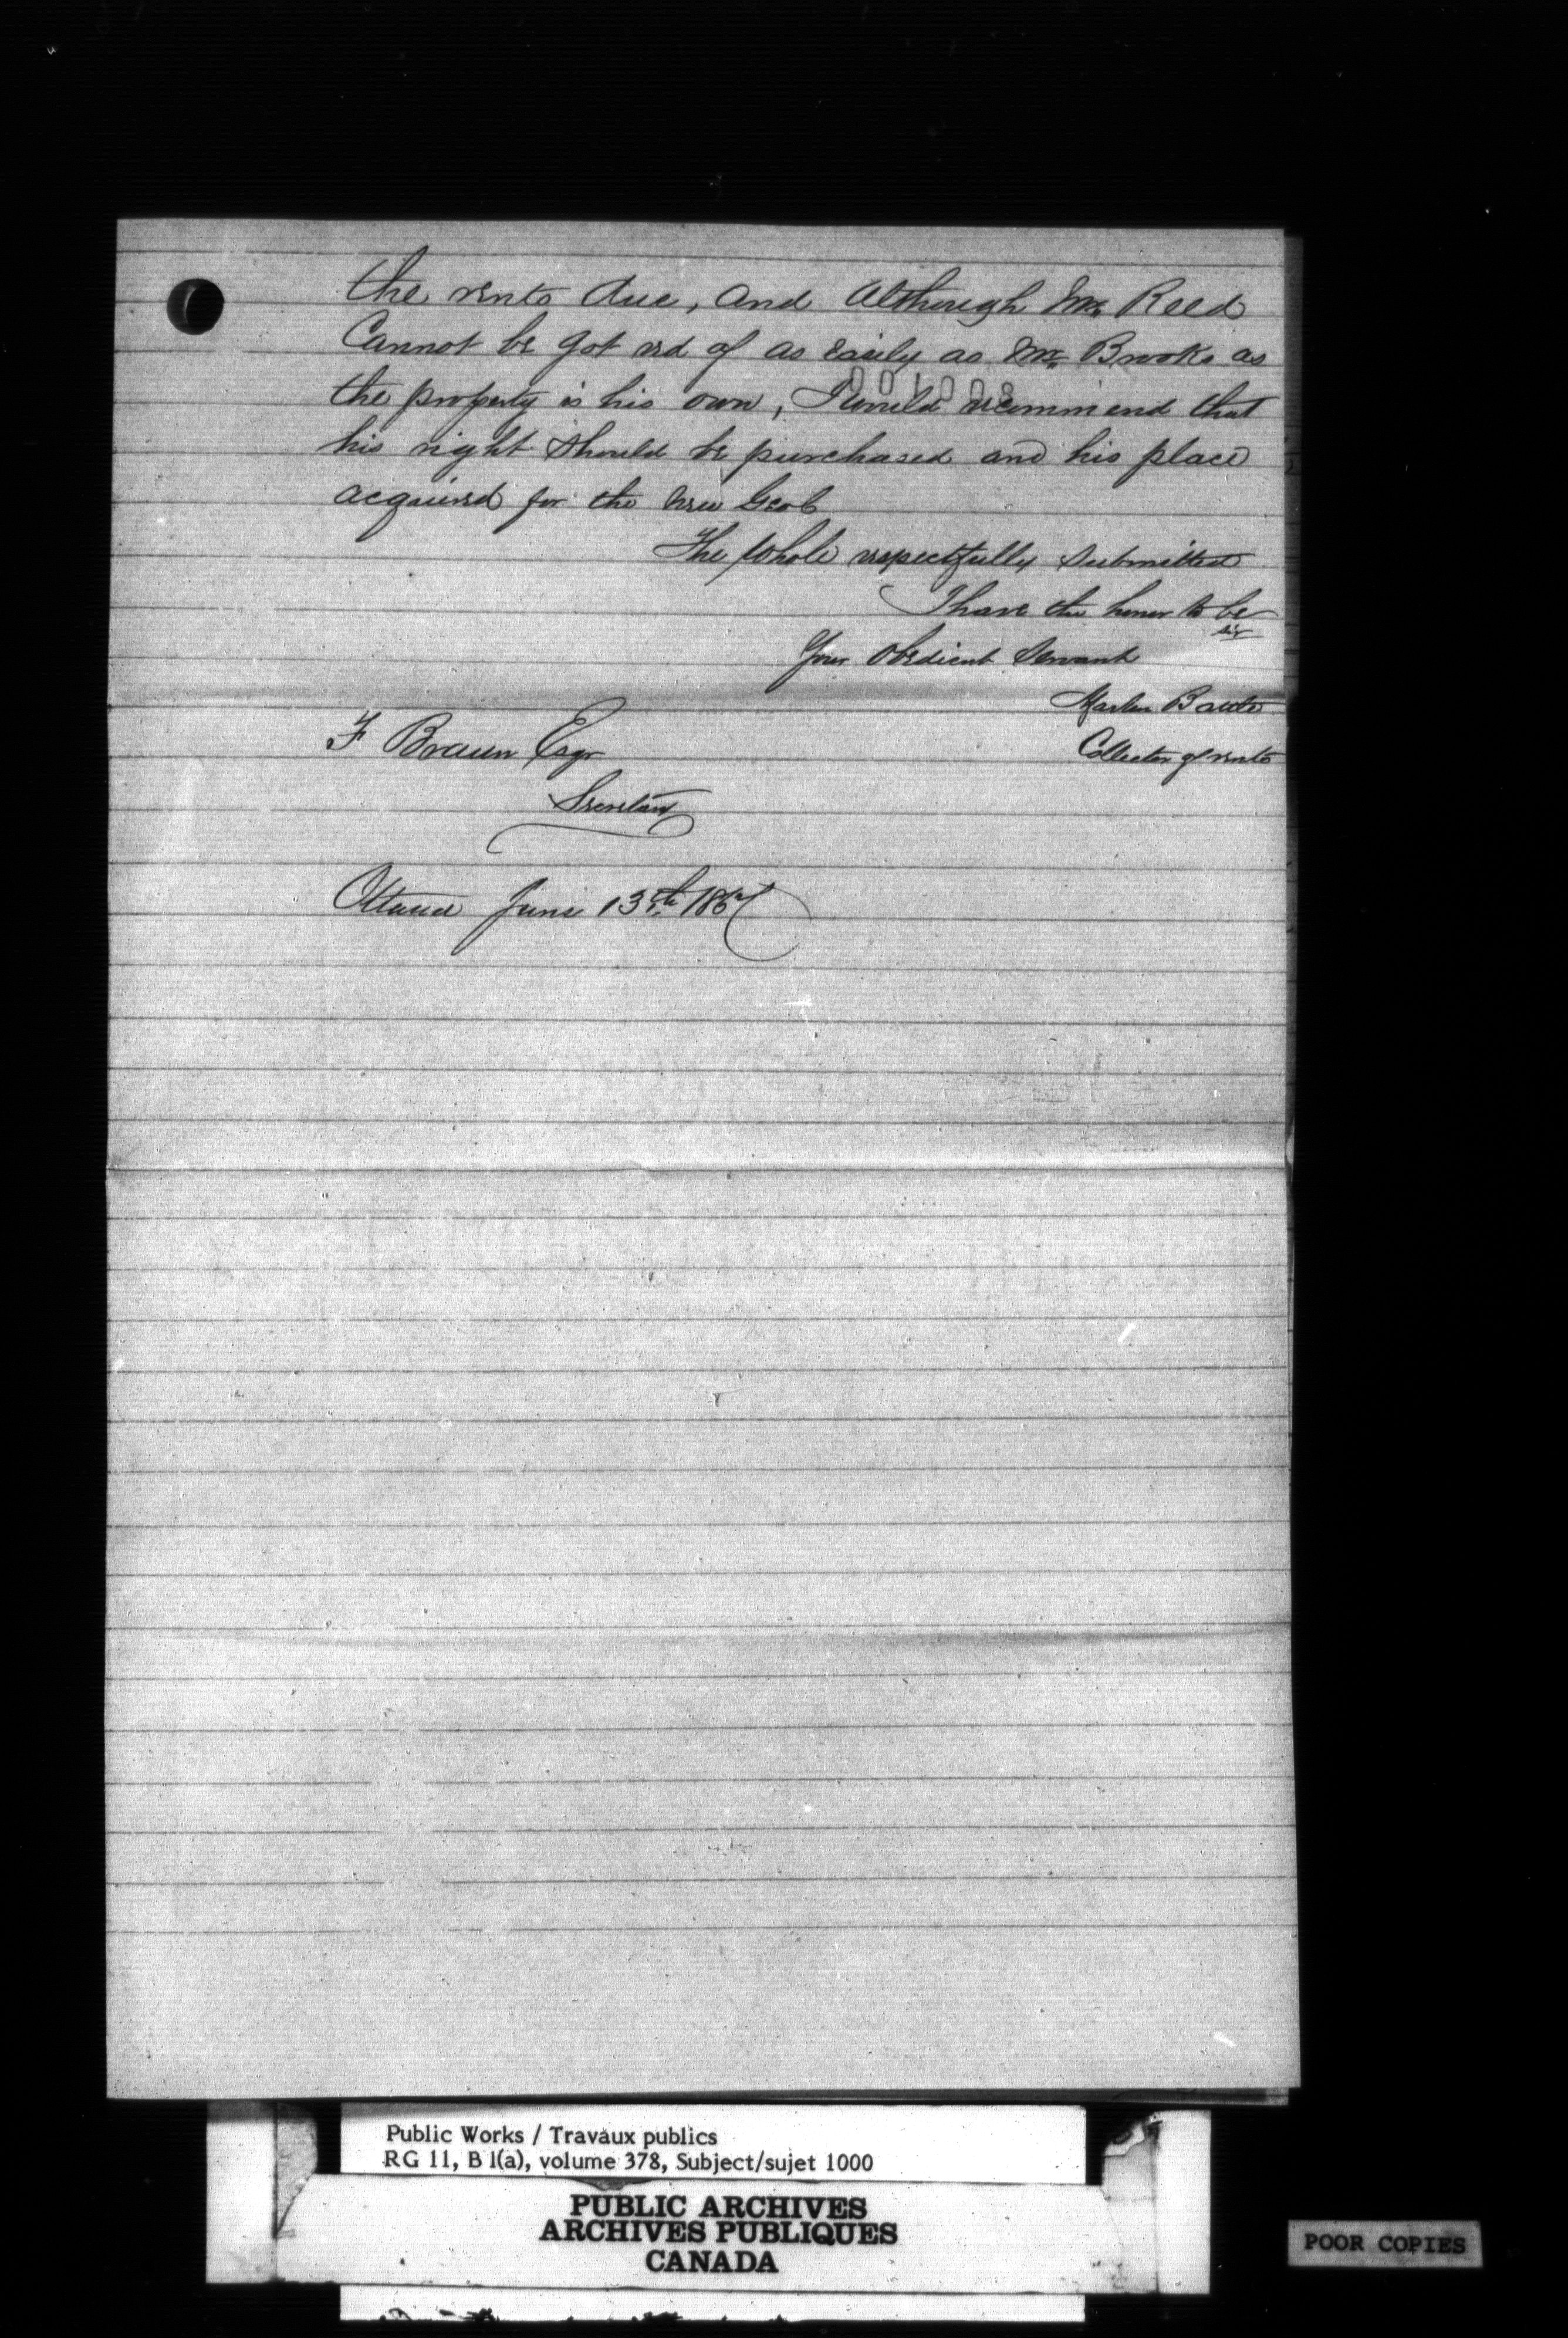 the rents due, and although Mr. Reed
Cannot be got rid of as easily as Mr. Brooks as
the property is his own, I would recommend that
his right should be purchased and his place
acquired for the new
The whole respectfully submitted
I have the honor to be
Sir
Your obedient Servant
Collector of rents
F Braun Esqr
Secretary
Ottawa June 13th 1867
Public Works / Travaux publics
RG 11, B 1(a), volume 378, Subject/sujet 1000
PUBLIC ARCHIVES
ARCHIVES PUBLIQUES
CANADA
POOR COPIES